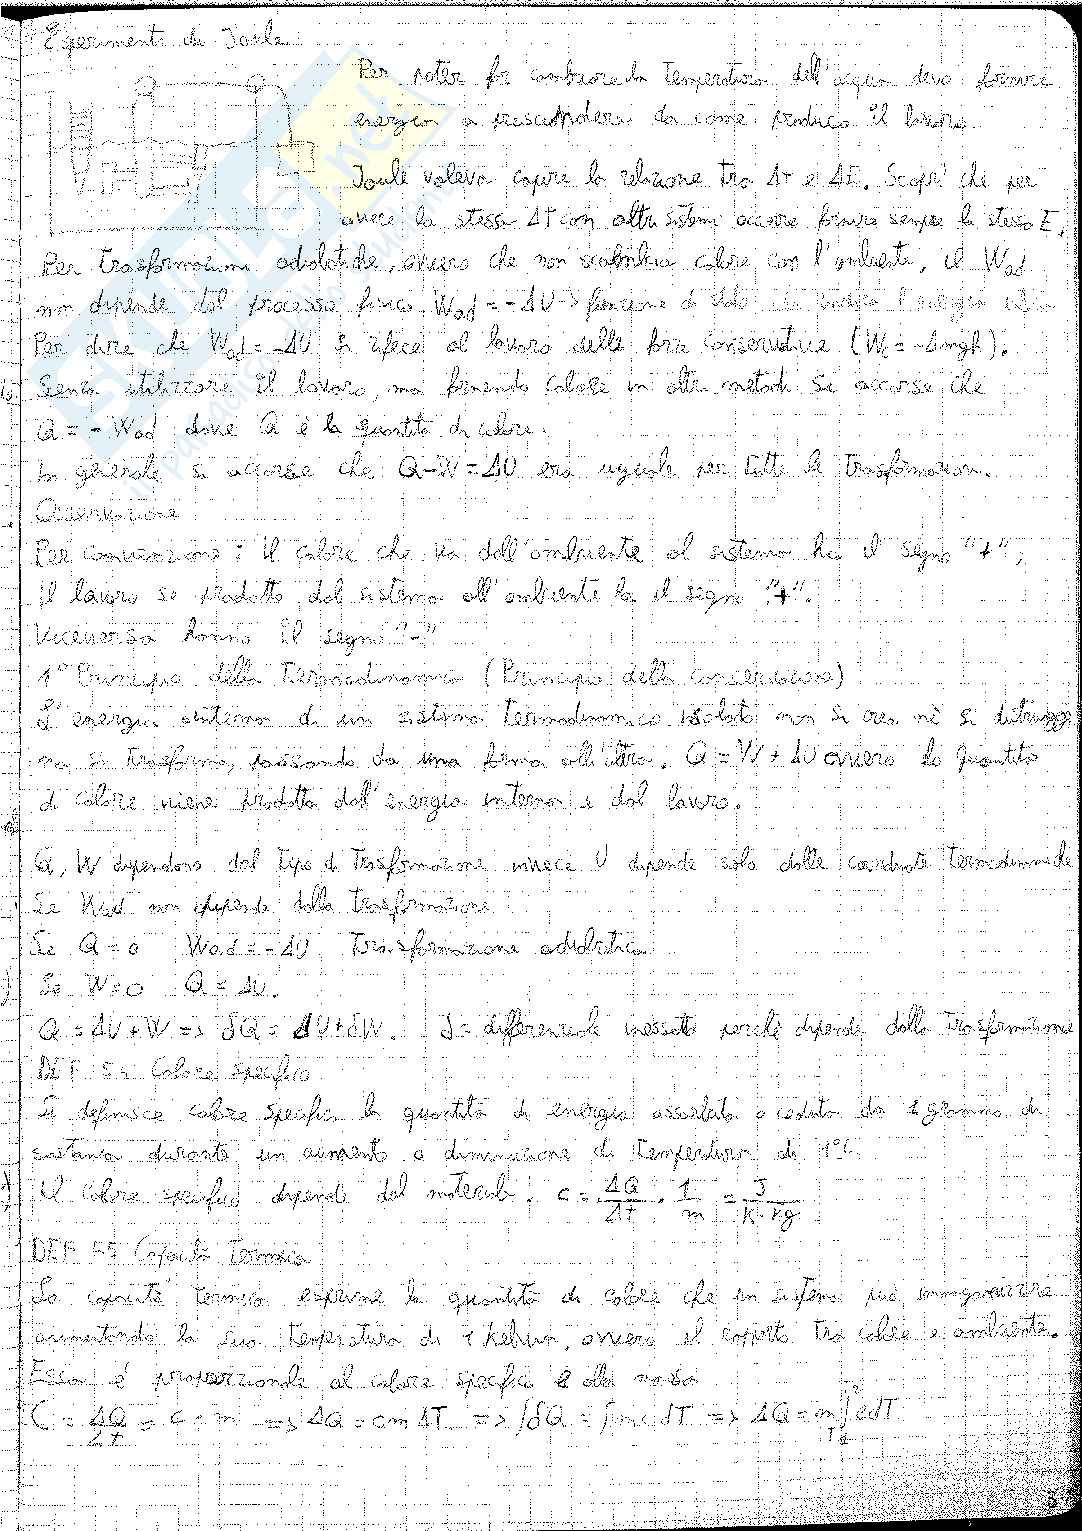 Esperimenti di Joule
Per poter far cambiare la temperatura dell'acqua devo fornire
energia a prescindere da come produco il lavoro.
Joule voleva capire la relazione tra Δt e ΔE. Scoprì che per
avere la stessa Δt con altri sistemi occorre fornire sempre la stessa E.
Per trasformazioni adiabatiche, ovvero che non scambia calore con l'ambiente, il Wad
non dipende dal processo fisico Wad = -ΔU → funzione di stato energia
Per dire che Wad = -ΔU si rifece al lavoro delle forze conservative (Wc = -Δmgh).
Senza utilizzare il lavoro, ma fornendo calore in altri metodi si accorse che
Q = -Wad dove Q è la quantità di calore.
In generale si accorse che Q-W = ΔU era uguale per tutte le trasformazioni.
Osservazione
Per convenzione: il calore che va dall'ambiente al sistema ha il segno "+",
il lavoro se prodotto dal sistema all'ambiente ha il segno "+".
Viceversa hanno il segno "-"
1° Principio della Termodinamica (Principio della conservazione)
L'energia interna di un sistema termodinamico isolato non si crea nè si distrugge
ma si trasforma, passando da una forma all'altra. Q = W + ΔU ovvero la quantità
di calore viene prodotta dall'energia interna e dal lavoro.
Q, W dipendono dal tipo di trasformazione invece U dipende solo dalle coordinate termodinamiche
Se Wad non dipende dalla trasformazione
Se Q = 0 Wad = -ΔU Trasformazione adiabatica
Se W=0 Q = ΔU.
Q = ΔU + W => δQ = dU + δW. δ = differenziale inesatto perchè dipende dalla trasformazione
DEF 54 Calore specifico
Si definisce calore specifico la quantità di energia assorbita o ceduta da 1 grammo di
sostanza durante un aumento o diminuzione di temperatura di 1°C
Il calore specifico dipende dal materiale. c = ΔQ/Δt · 1/m = J/K·kg
DEF 55 Capacità termica
La capacità termica esprime la quantità di calore che un sistema può immagazzinare
aumentando la sua temperatura di 1 Kelvin, ovvero il rapporto tra calore e ambiente.
Essa è proporzionale al calore specifico e alla massa
C = ΔQ/Δt = c · m => ΔQ = cmΔT => ∫δQ = ∫mcdT => ΔQ = m∫cdT